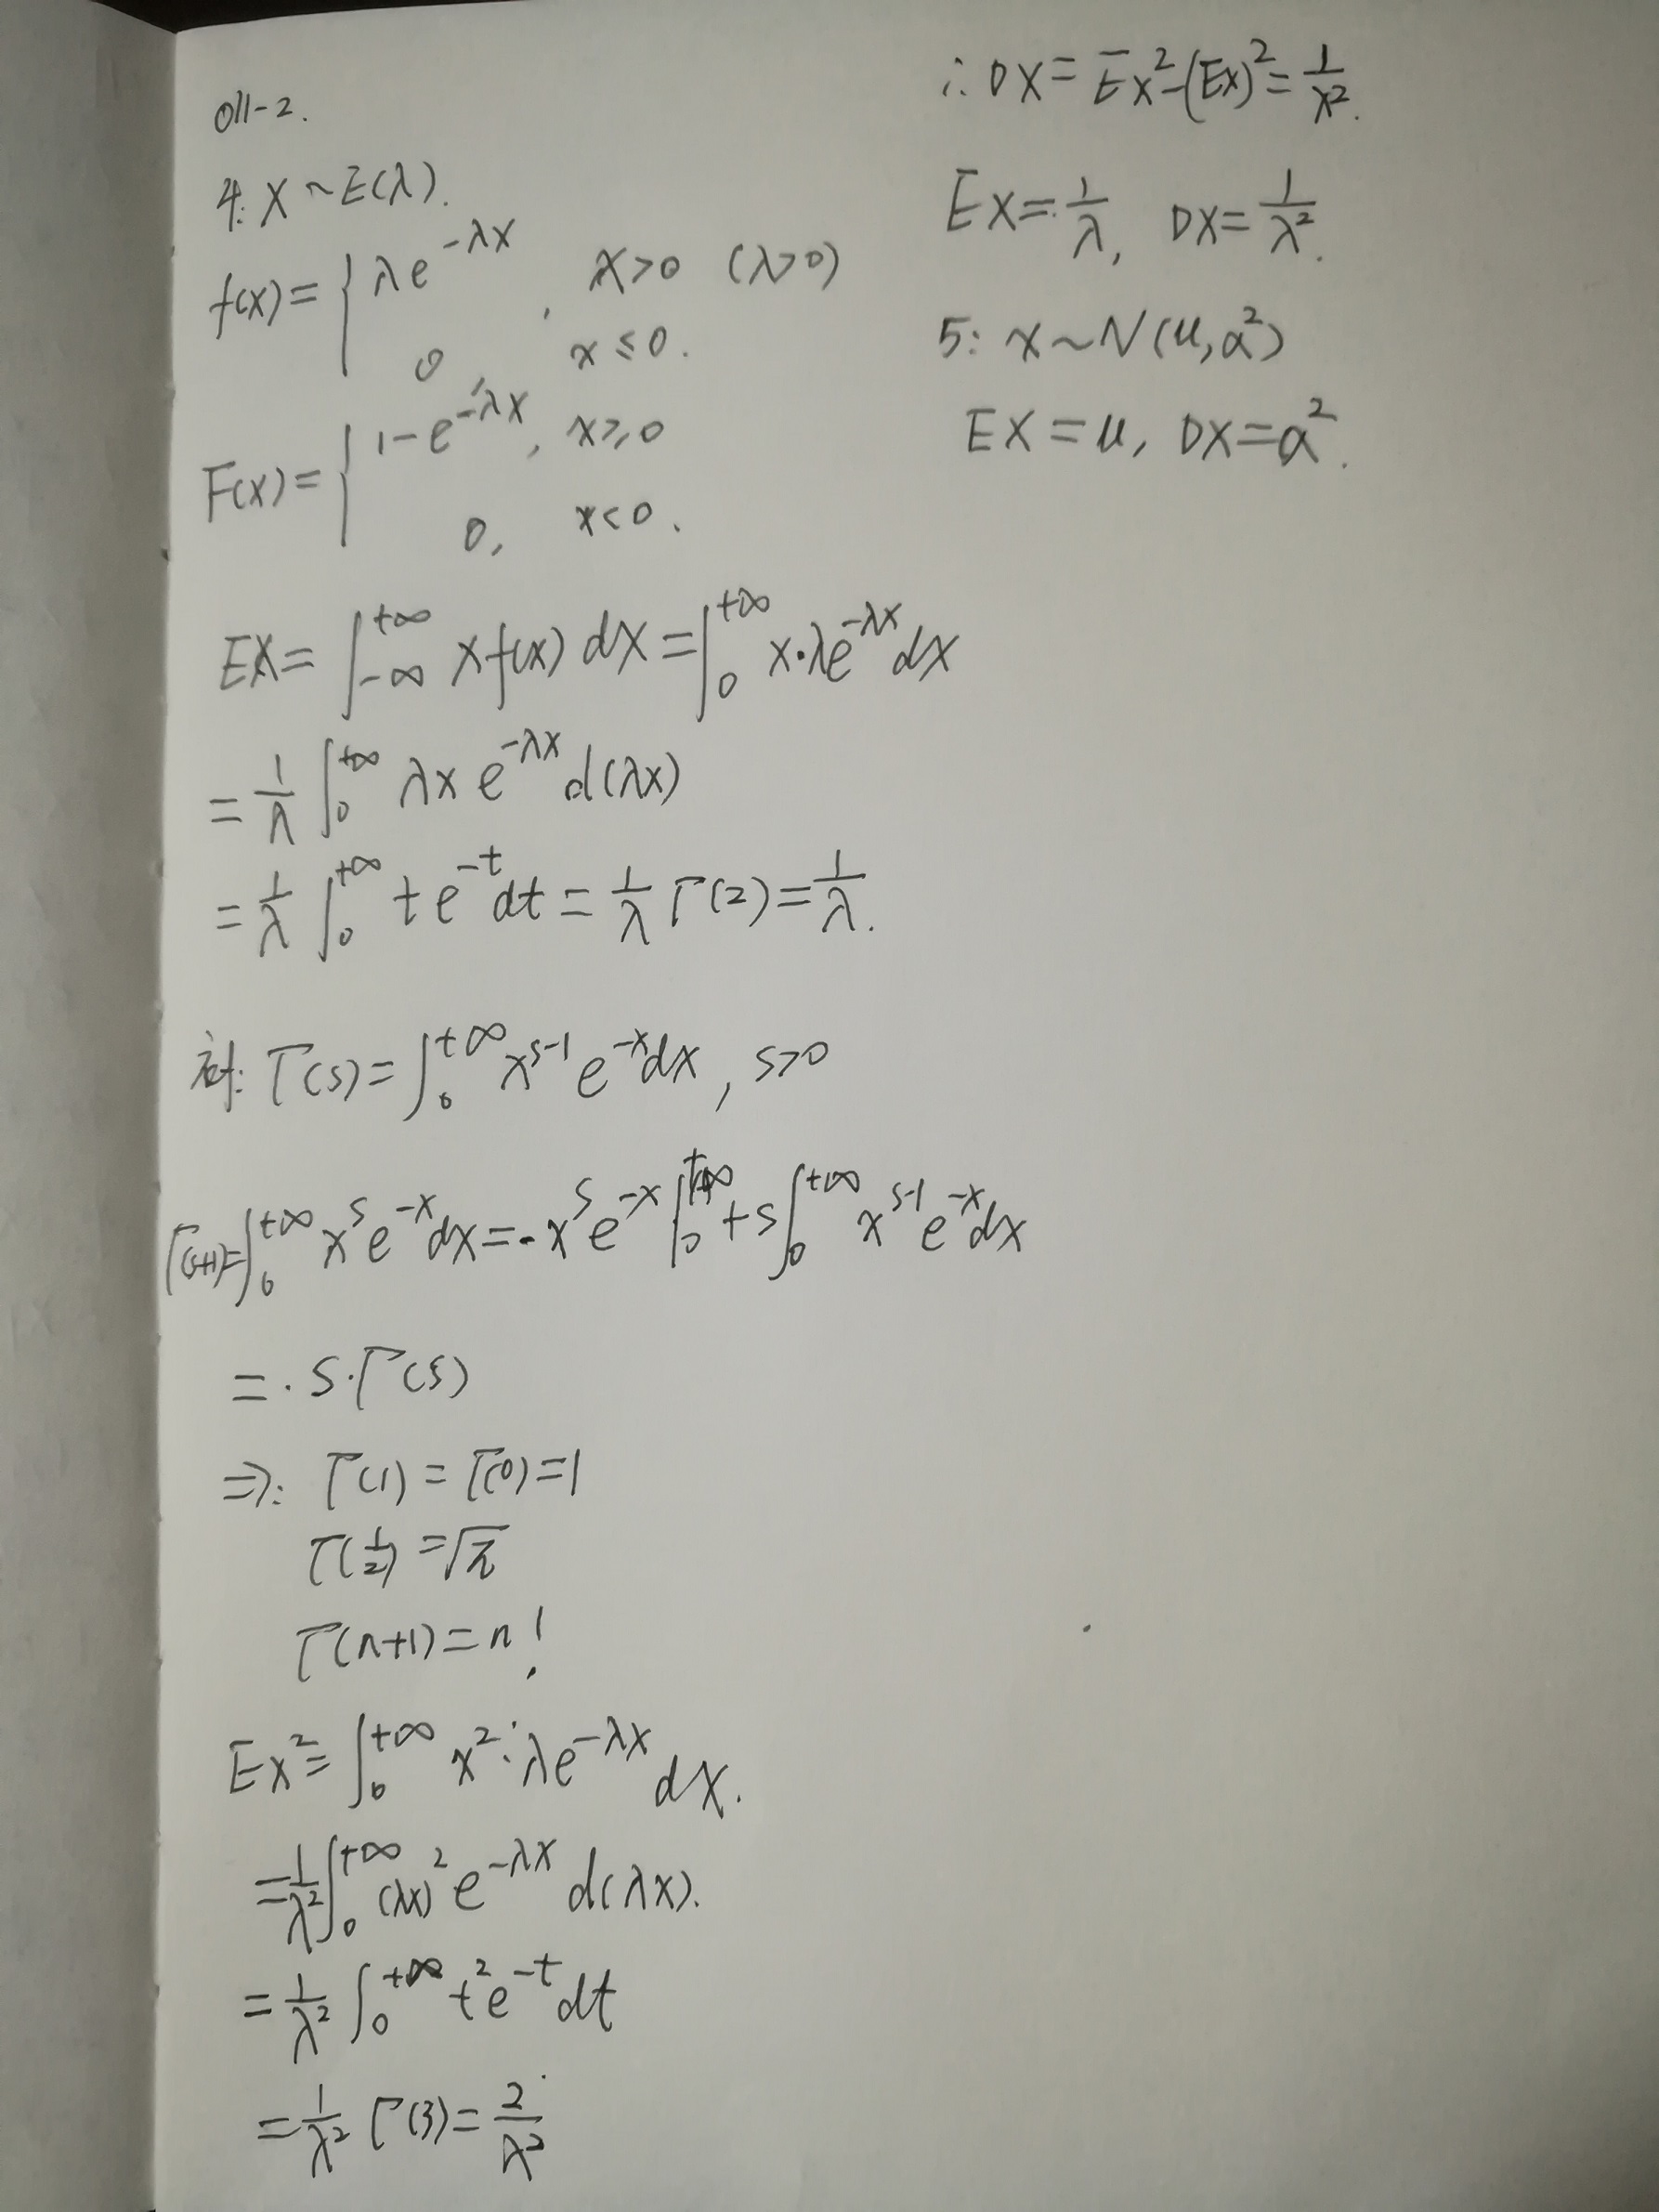 011-2.
4: X ~ E(λ).
f(x) = { λe^{-λx}, x>0 (λ>0)
0, x≤0.
F(x) = { 1-e^{-λx}, x≥0
0, x<0.
EX = ∫_{-∞}^{+∞} x f(x) dx = ∫_0^{+∞} x·λe^{-λx} dx
= 1/λ ∫_0^{+∞} λx e^{-λx} d(λx)
= 1/λ ∫_0^{+∞} t e^{-t} dt = 1/λ Γ(2) = 1/λ.
Γ(s) = ∫_0^{+∞} x^{s-1} e^{-x} dx, s>0
Γ(s+1) = ∫_0^{+∞} x^s e^{-x} dx = -x^s e^{-x} |_0^{+∞} + s∫_0^{+∞} x^{s-1} e^{-x} dx
= · s·Γ(s)
⇒: Γ(1) = Γ(0) = 1
Γ(1/2) = √π
Γ(n+1) = n!
EX² = ∫_0^{+∞} x²·λe^{-λx} dx.
= 1/λ² ∫_0^{+∞} (λx)² e^{-λx} d(λx).
= 1/λ² ∫_0^{+∞} t² e^{-t} dt
= 1/λ² Γ(3) = 2/λ²
∴ DX = EX² - (EX)² = 1/λ².
EX = 1/λ, DX = 1/λ².
5: X ~ N(u, α²)
EX = u, DX = α².